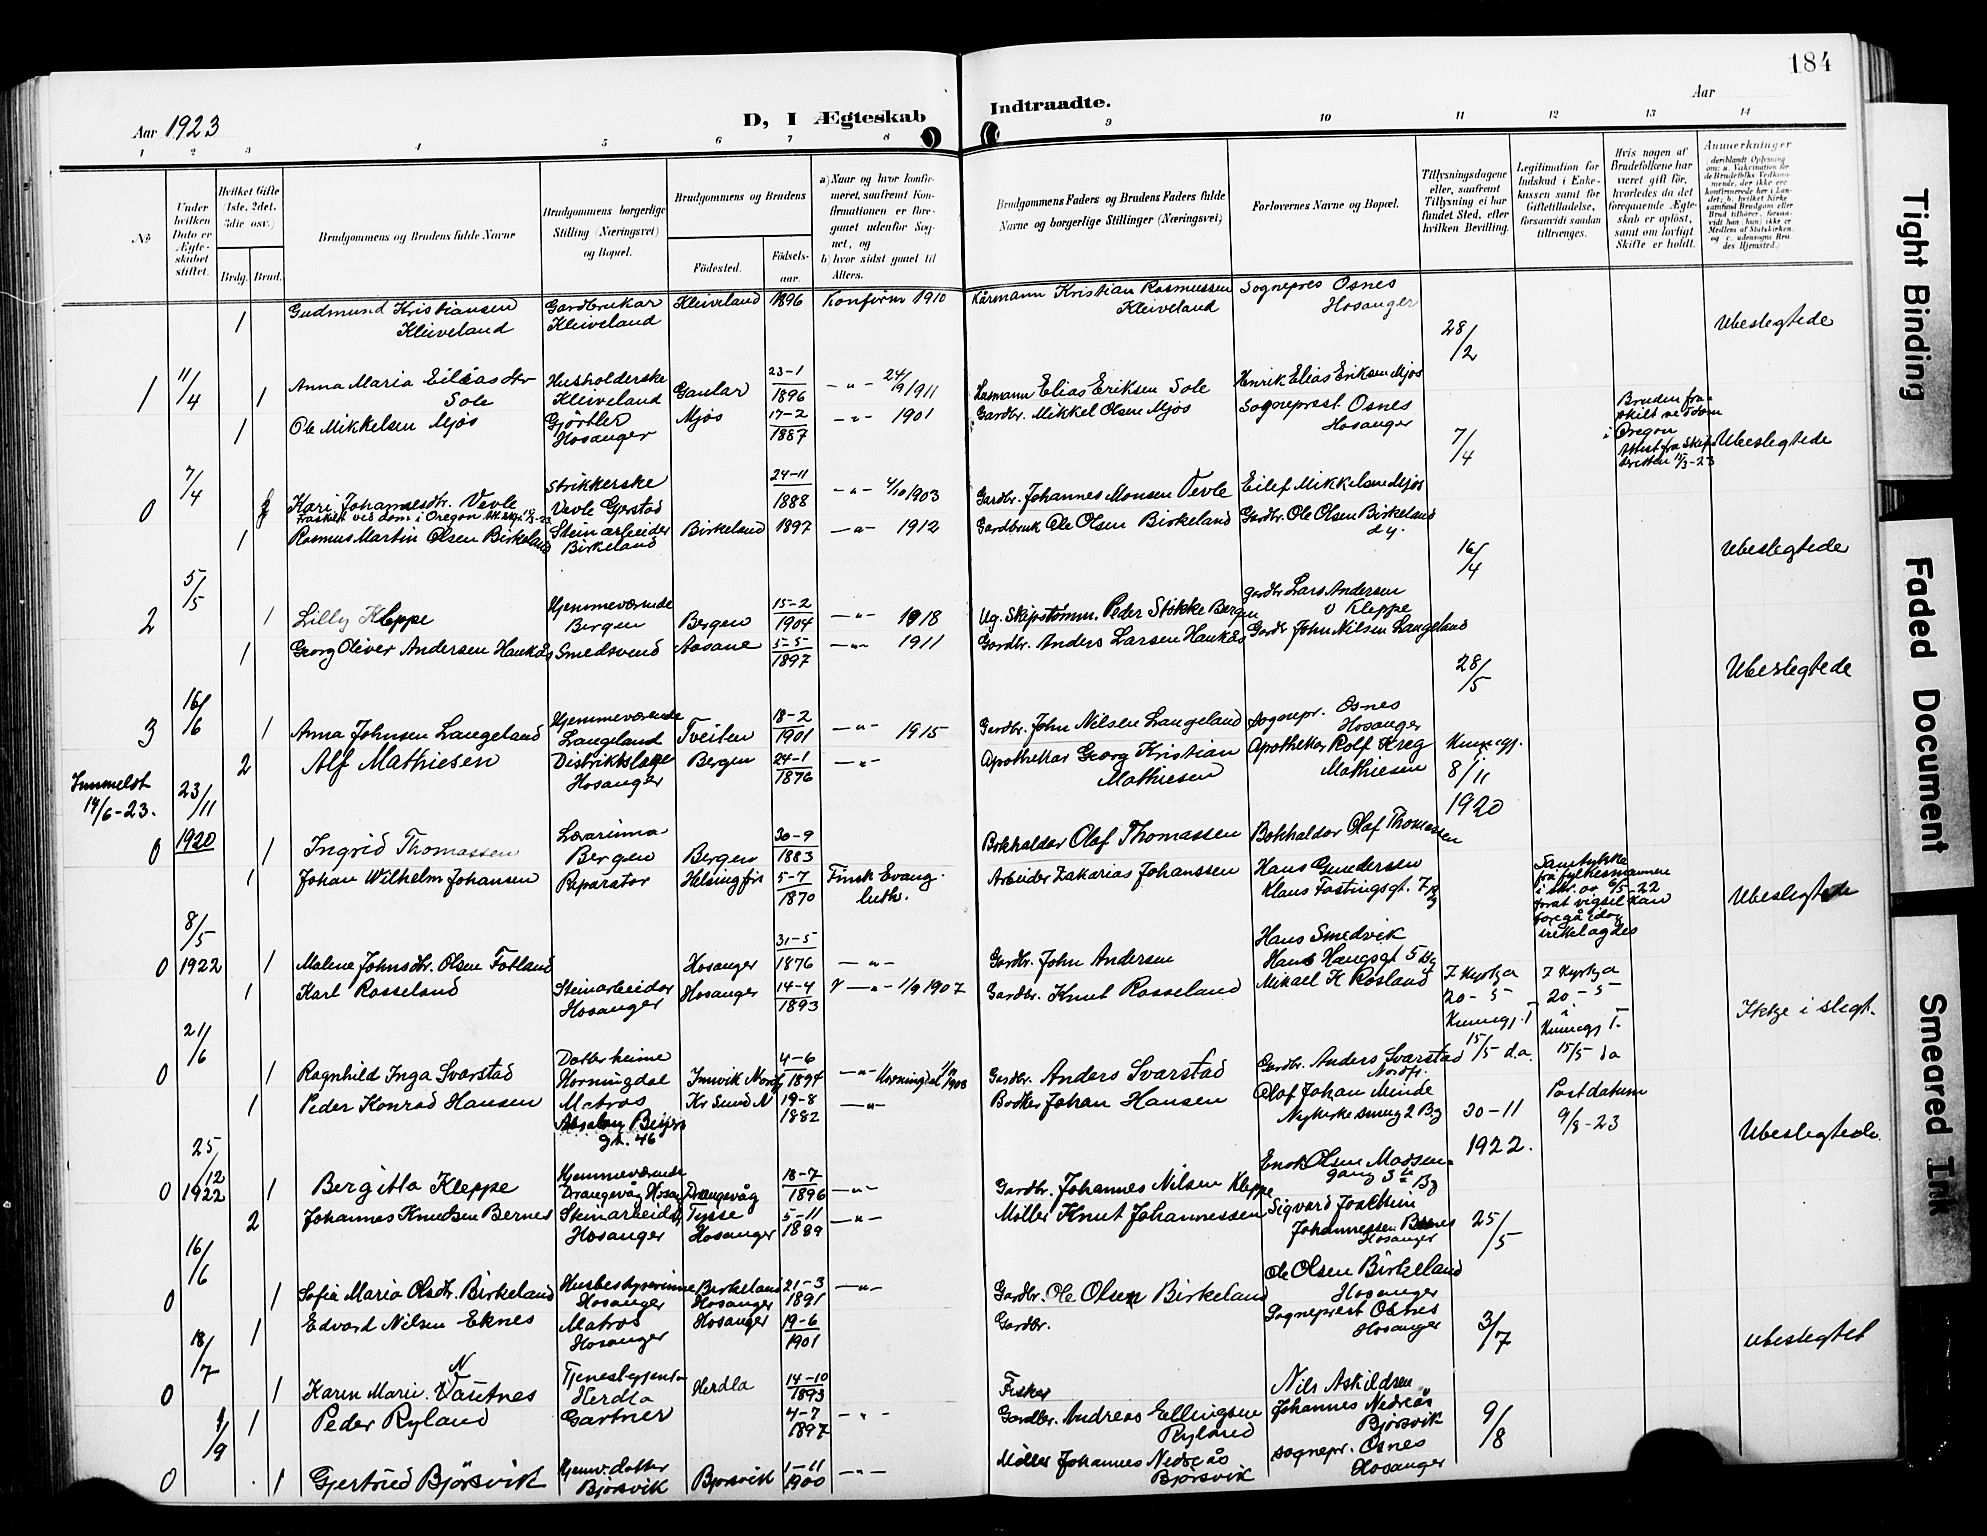 184
Aar 1923
D, I Ægteskab Indtraadte.
Aar
1 2 3 4 5 6 7 8 9 10 11 12 13 14
No
Under hvilken Dato er Ægteskabet stiftet.
Hvilket Gifte (1ste, 2det, 3die osv.)
Brdg. Brud.
Brudgommens og Brudens fulde Navne
Brudgommens borgerlige Stilling (Næringsvei) og Bopæl.
Brudgommens og Brudens
Fødested.
Fødselsaar.
a) Naar og hvor konfirmeret, saafremt Konfirmationen er foregaaet udenfor Sognet, og
b) hvor sidst gaaet til Alters.
Brudgommens Faders og Brudens Faders fulde Navne og borgerlige Stillinger (Næringsvei)
Forlovernes Navne og Bopæl.
Tillysningsdagene eller, saafremt Tillysning ei har fundet Sted, efter hvilken Bevilling.
Legitimation for Indskud i Enkekassen samt for Giftetilladelse, forsaavidt saadan tiltrænges.
Hvis nogen af Brudefolkene har været gift før, hvorledes da det foregaaende Ægteskab er opløst, samt om lovligt Skifte er holdt.
Anmerkninger
1 Gudmund Kristiansen Kleiveland Gardbrukar Kleiveland Kleiveland 1896 Konfirm 1910 Kårmann Kristian Rasmussen Kleiveland Sognepres Osnes Hosanger 28/2 Ubeslegtede
1 11/4 1 Anna Maria Eliasdtr Sole Husholderske Kleiveland Gaular 23-1 1896 -"- 24/9 1911 Husmann Elias Eriksen Sole Henrik Elias Eriksen Mjøs
1 Ole Mikkelsen Mjøs Gjørtler Hosanger Mjøs 17-2 1887 -"- 1901 Gardbr. Mikkel Olsen Mjøs Sogneprest Osnes Hosanger 7/4 Bruden fraskilt ve dom i Oregon Ubeslegtede
0 7/4 Kari Johannesdtr. Vevle Fraskilt ved dom i Oregon Strikkerske Vevle Gjerstad 24-11 1888 -"- 4/10 1903 Gardbr. Johannes Monsen Vevle Eilef Mikkelsen Mjøs
1 Rasmus Martin Olsen Birkeland Steinarbeider Birkeland Birkeland 1897 -"- 1912 Gardbruk Ole Olsen Birkeland Gardbr. Ole Olsen Birkeland d.y. 16/4 Ubeslegtede
2 5/5 1 Lilly Kleppe Hjemmeværende Bergen Bergen 15-2 1904 -"- 1918 Ug. Skipstømm. Peder Støkke Bergen Gardbr Lars Andersen v Kleppe
1 Georg Oliver Andersen Haukås Smedsvend Aasane 5-5 1897 -"- 1911 Gardbr. Anders Larsen Haukås Gardbr John Nilsen Langeland 28/5 Ubeslegtede
3 16/6 1 Anna Johnsen Langeland Hjemmeværende Langeland Tveiten 18-2 1901 -"- 1915 Gardbr. John Nilsen Langeland Sognepr. Osnes Hosanger
Innmeldt 14/6-23. 23/11 1920 2 Alf Mathiesen Distriktslæge Hosanger Bergen 24-1 1876 -"- Apotheker Georg Kristian Mathiesen Apotheker Rolf Kreg Mathiesen Kunngj. 8/11 1920
0 1 Ingrid Thomassen Lærarinna Bergen Bergen 30-9 1883 Bokhaldar Olaf Thomassen Bokhaldar Olaf Thomassen
1 Johan Wilhelm Johansen Reparatør Helsingfors 5-7 1870 Finsk Evang. luth. Arbeider Zakarias Johanssen Hans Gundersen Klaus Fastingsgt. 7 Bg Samtykke fra fylkesmannen i skr. av 6/5-22 forat vigsel kan foregå Ubeslegtede
0 8/5 1922 1 Malene Johnsdtr. Olsen Fotland Hosanger 31-5 1876 -"- Gardbr. John Andersen Hans Smedvik Hans Haugsgt 5 Bg
1 Karl Rosseland Steinarbeidar Hosanger Hosanger 14-4 1893 -"- 1/9 1907 Gardbr. Knut Rosseland Mikael K Rosland I Kyrkja 20-5 Kunngj. T 15/5 d.a. I Kyrkja 20-5 Kunngj T. 15/5 da Ikkje i slegt.
0 21/6 1 Ragnhild Inga Svarstad Dotter heime Hornindal Innvik Nordfj 4-6 1894 -"- Hornindal 1908 Gardbr. Anders Svarstad Gardbr. Anders Svarstad Nordfj.
1 Peder Konrad Hansen Matros Absalon Beijers gt. 46 Kr Sund N 19-8 1882 -"- Bødker Johan Hansen Olaf Johan Minde Nykirkesmug 2 Bg 30-11 1922. Postdatum 9/8-23 Ubeslegtede
0 25/12 1922 1 Bergitta Kleppe Hjemmeværende Drangevåg Hosan Drangevåg 18-7 1896 -"- Gardbr. Johannes Nilsen Kleppe Enok Olsen Madsen-gang 3 Bg
2 Johannes Knutsen Bernes Steinarbeider Hosanger Tysse Hosanger 5-11 1889 -"- Møller Knut Johannessen Sigvard Joakheim Johannessen Bernes Hosanger 25/5
0 16/6 1 Sofia Maria Olsdtr. Birkeland Husbestyrerinne Hosanger Birkeland Hosanger 21-3 1891 -"- Gardbr. Ole Olsen Birkeland Ole Olsen Birkeland Hosanger
1 Edvard Nilsen Eknes Matros Hosanger Hosanger 19-6 1901 Gardbr. Sogneprest Osnes Hosanger 3/7 Ubeslegtet
0 18/7 1 Karen Marie N Vautnes Herdla Herdla 14-10 1893 Fisker Nils Askildsen
1 Peder Ryland Gartner 4-7 1897 -"- Gardbr. Andreas Ellingsen Ryland Johannes Nedreås Bjørsvik 9/8
0 1/9 1 Gjertrud Bjørsvik Hjemv. datter Bjørsvik Bjørsvik 1-11 1900 -"- Møller Johannes Nedreås Bjørsvik Sognepr. Osnes Hosanger
Tight Binding
Faded Document
Smeared Ink